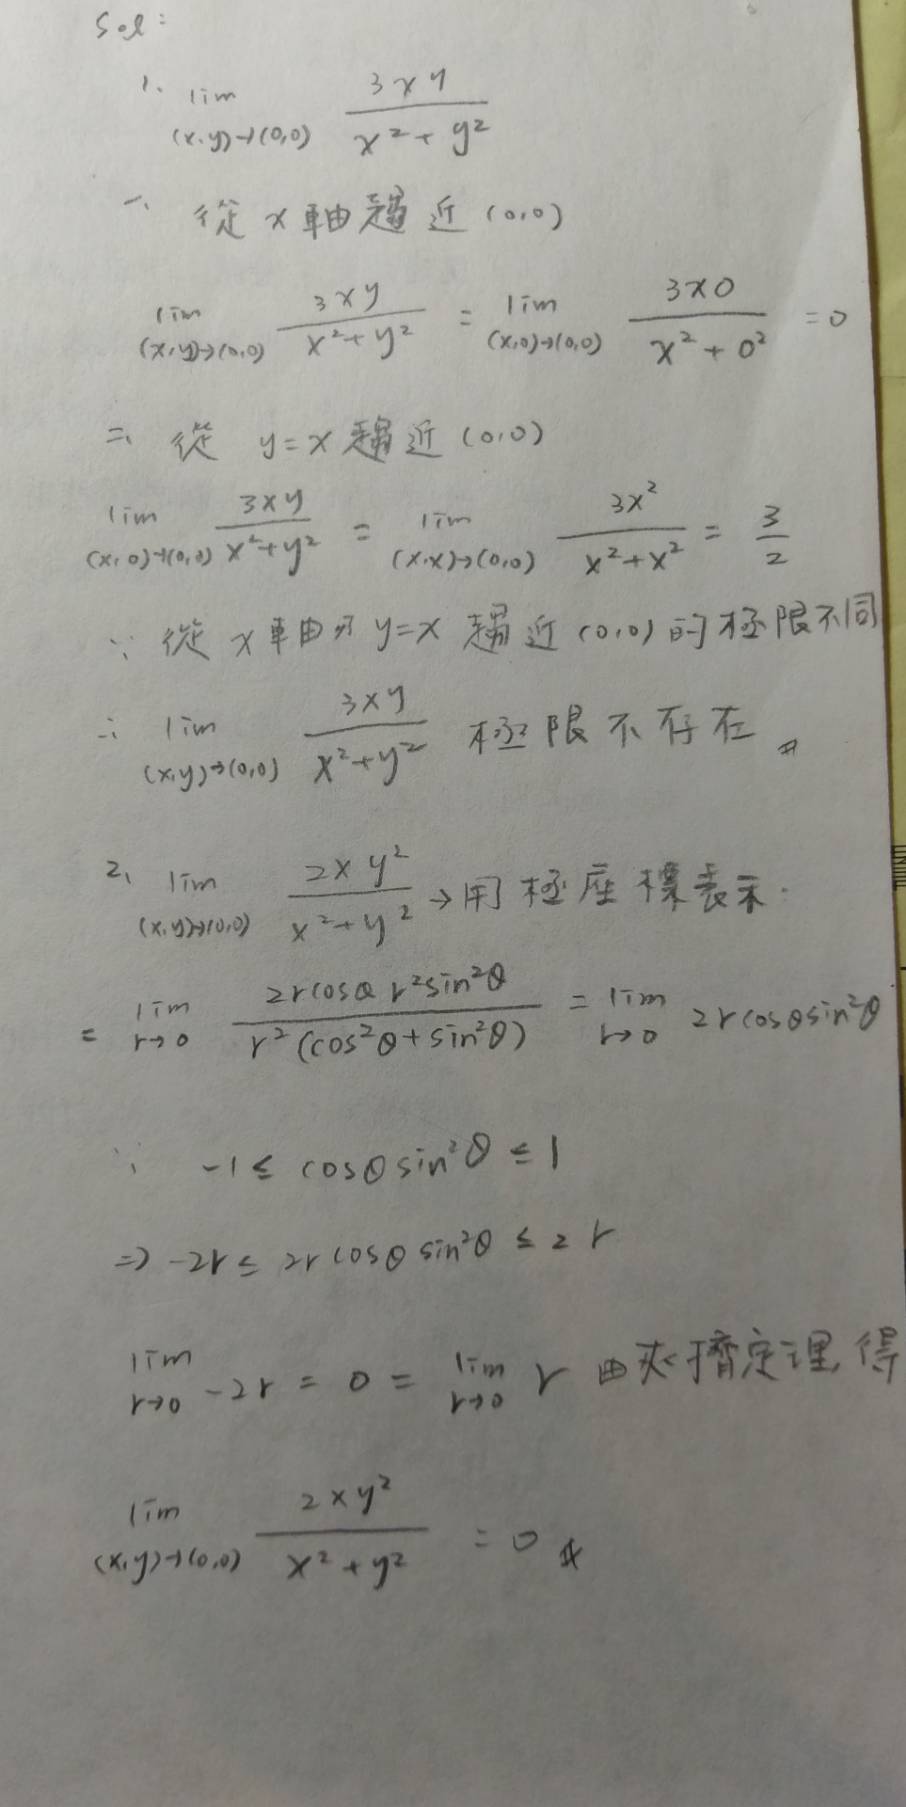 Sol:
1. lim (x,y)→(0,0) 3xy / x²+y²
一、從 x 軸趨近 (0,0)
lim (x,y)→(0,0) 3xy / x²+y² = lim (x,0)→(0,0) 3x0 / x²+0² = 0
二、從 y=x 趨近 (0,0)
lim (x,0)→(0,0) 3xy / x²+y² = lim (x,x)→(0,0) 3x² / x²+x² = 3/2
∵ 從 x 軸 y=x 趨近 (0,0) 的極限不同
∴ lim (x,y)→(0,0) 3xy / x²+y² 極限不存在 #
2、lim (x,y)→(0,0) 2xy² / x²+y² → 用極座標表示.
= lim r→0 2rcosθ r²sin²θ / r²(cos²θ+sin²θ) = lim r→0 2rcosθsin²θ
∵ -1 ≤ cosθsin²θ ≤ 1
⇒ -2r ≤ 2rcosθsin²θ ≤ 2r
lim r→0 -2r = 0 = lim r→0 r 由夾擠定理得
lim (x,y)→(0,0) 2xy² / x²+y² = 0 #